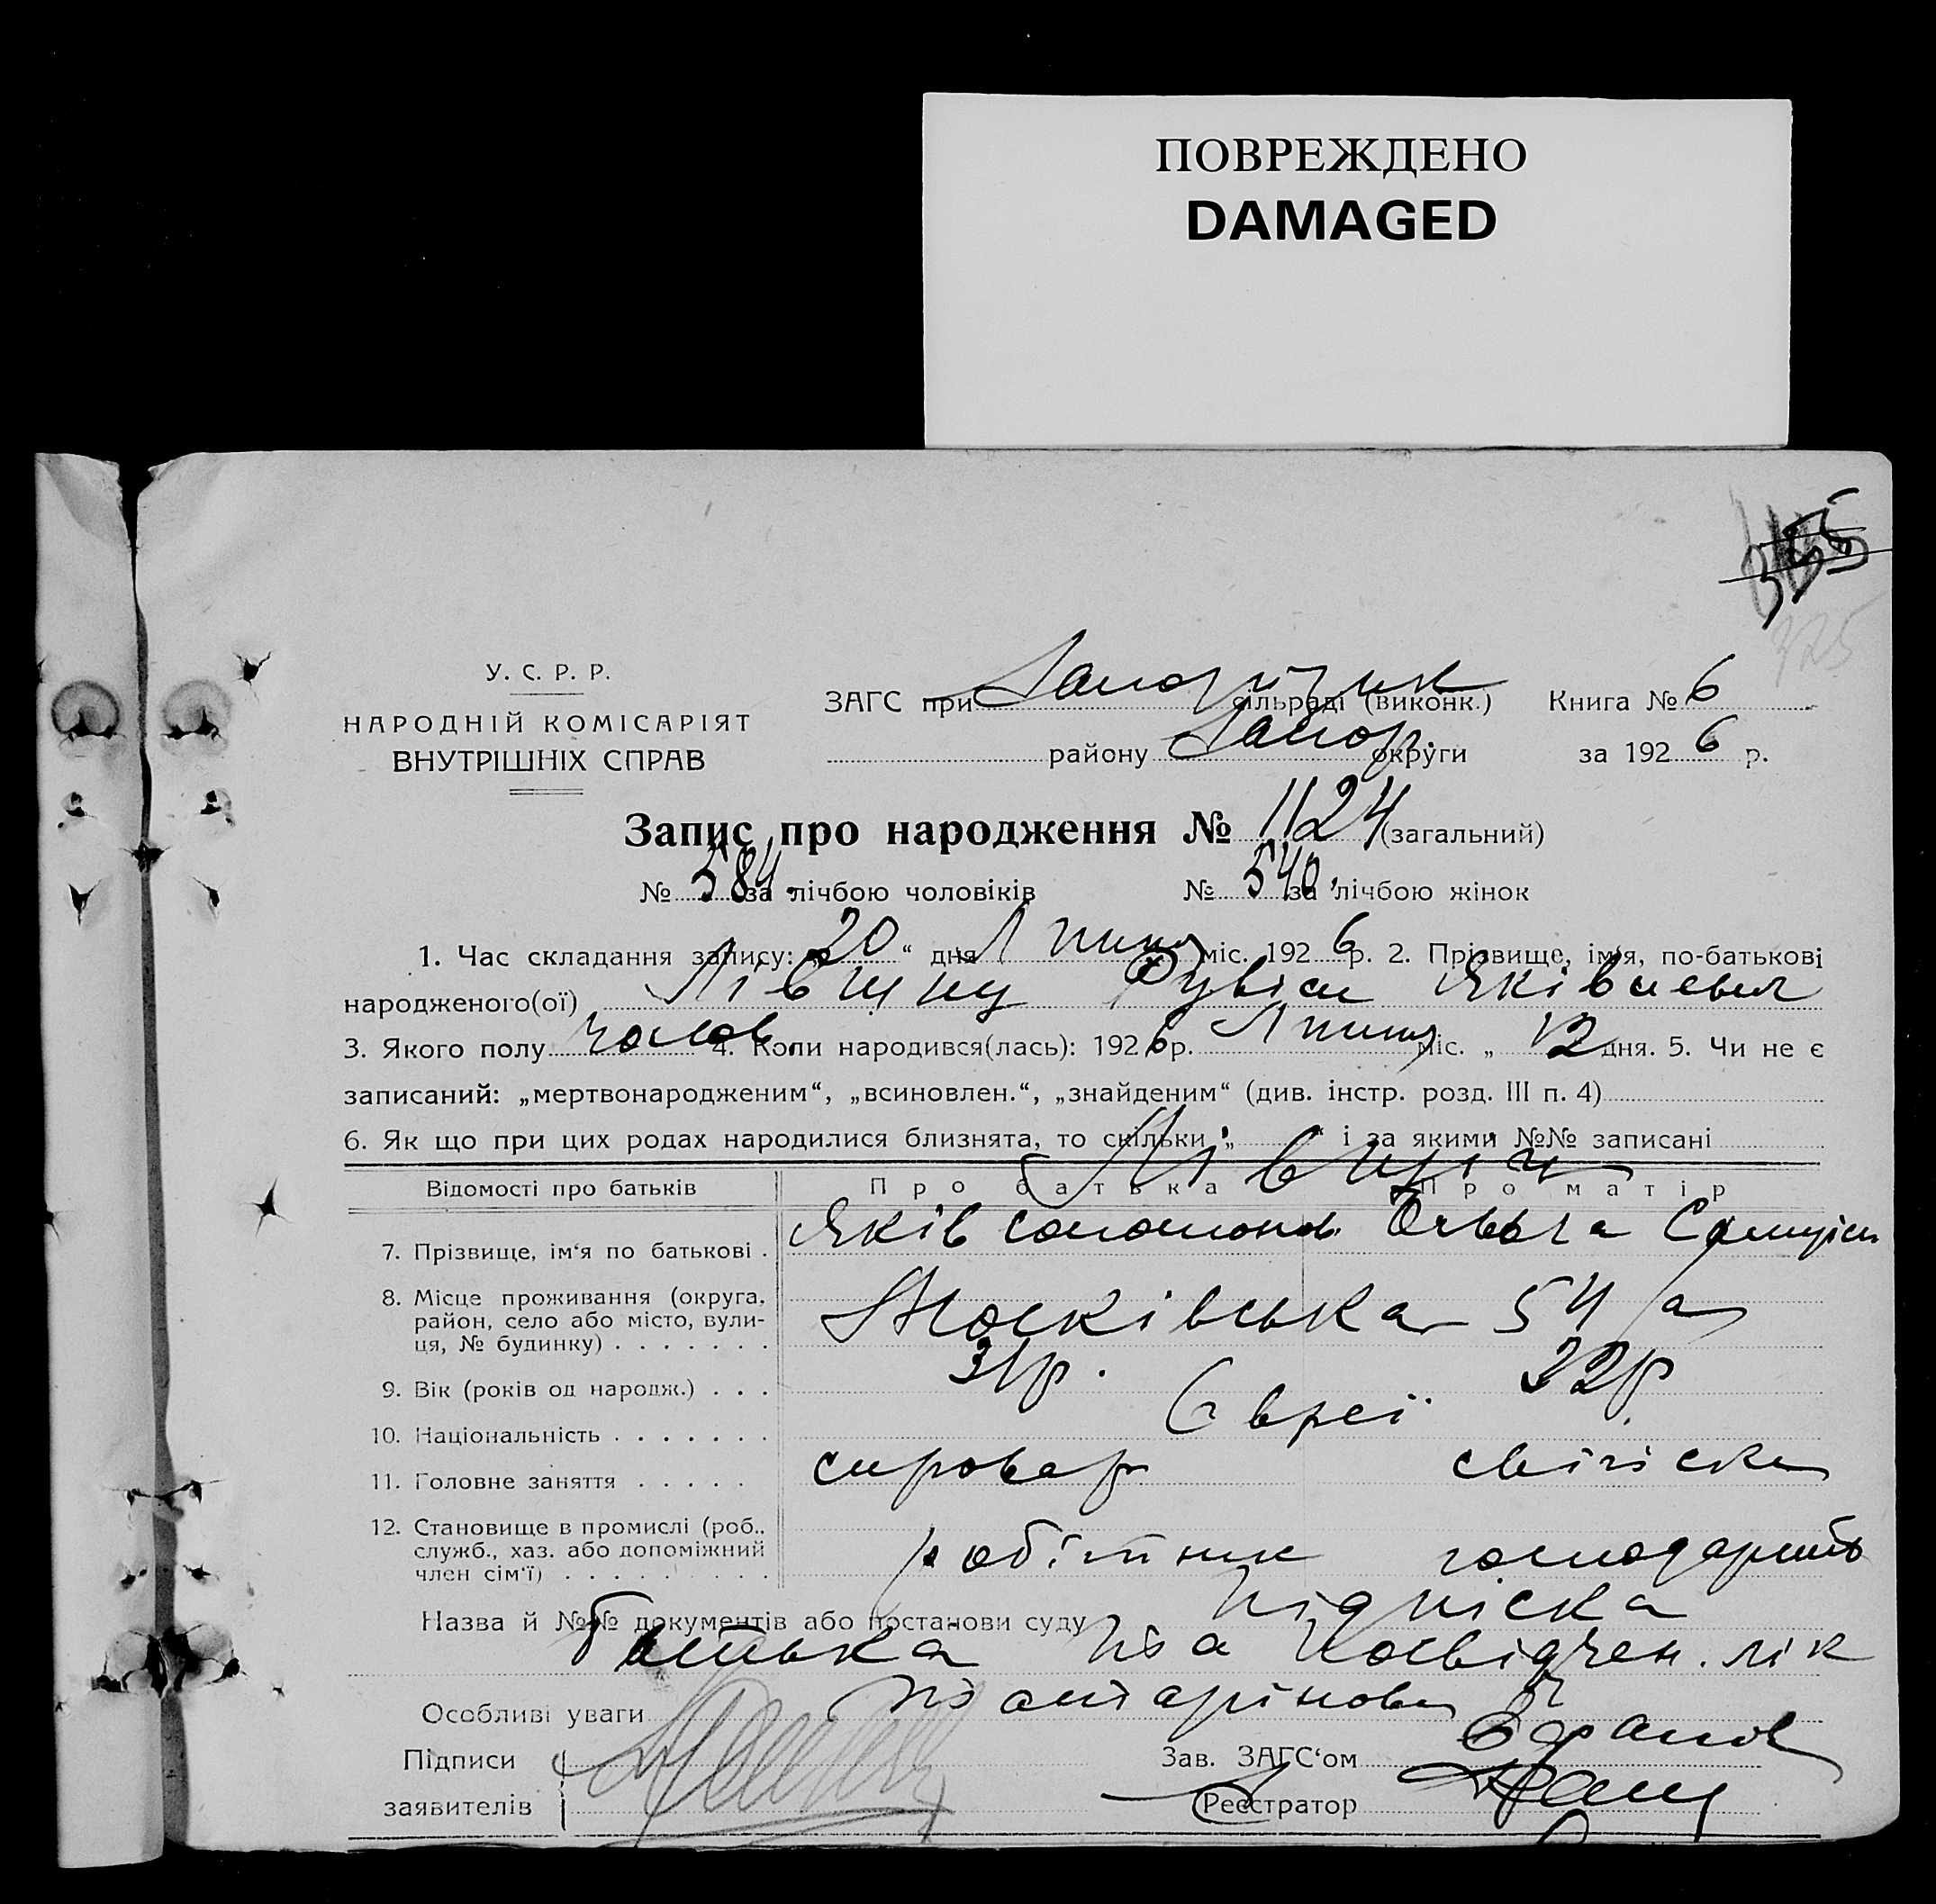 ПОВРЕЖДЕНО
DAMAGED
325
У. С. Р. Р.
НАРОДНІЙ КОМІСАРІЯТ
ВНУТРІШНІХ СПРАВ
ЗАГС при сільраді (виконк.) Книга № 6
району Запор. округи за 1926 р.
Запис про народження № 1124 (загальний)
№ 584 за лічбою чоловіків № 540 за лічбою жінок
1. Час складання запису: „20“ дня Липня міс. 1926 р. 2. Прізвище, ім'я, по-батькові
народженого(ої) Рувім Яківлевич
3. Якого полу чолов. 4. Коли народився(лась): 1926 р. Липня міс. „12 дня. 5. Чи не є
записаний: „мертвонародженим“, „всиновлен.“, „знайденим“ (див. інстр. розд. III п. 4)
6. Як що при цих родах народилися близнята, то скільки „ “ і за якими №№ записані
Відомості про батьків Про батька Про матір
7. Прізвище, ім'я по батькові . Яків Соломонов. Ольга Самуїл
8. Місце проживання (округа,
район, село або місто, вули-
ця, № будинку) . . . . . . . Московська 54 а
9. Вік (років од народж.) . . . 31 р. 32 р
10. Національність . . . . . . . Євреї
11. Головне заняття . . . . . сировар
12. Становище в промислі (роб.,
служб., хаз. або допоміжний
член сім'ї) . . . . . . . . . робітник господарить
Назва й №№ документів або постанови суду підпіска
батька посвідчен. лік
Особливі уваги
Підписи
заявителів
Зав. ЗАГС'ом
Реєстратор